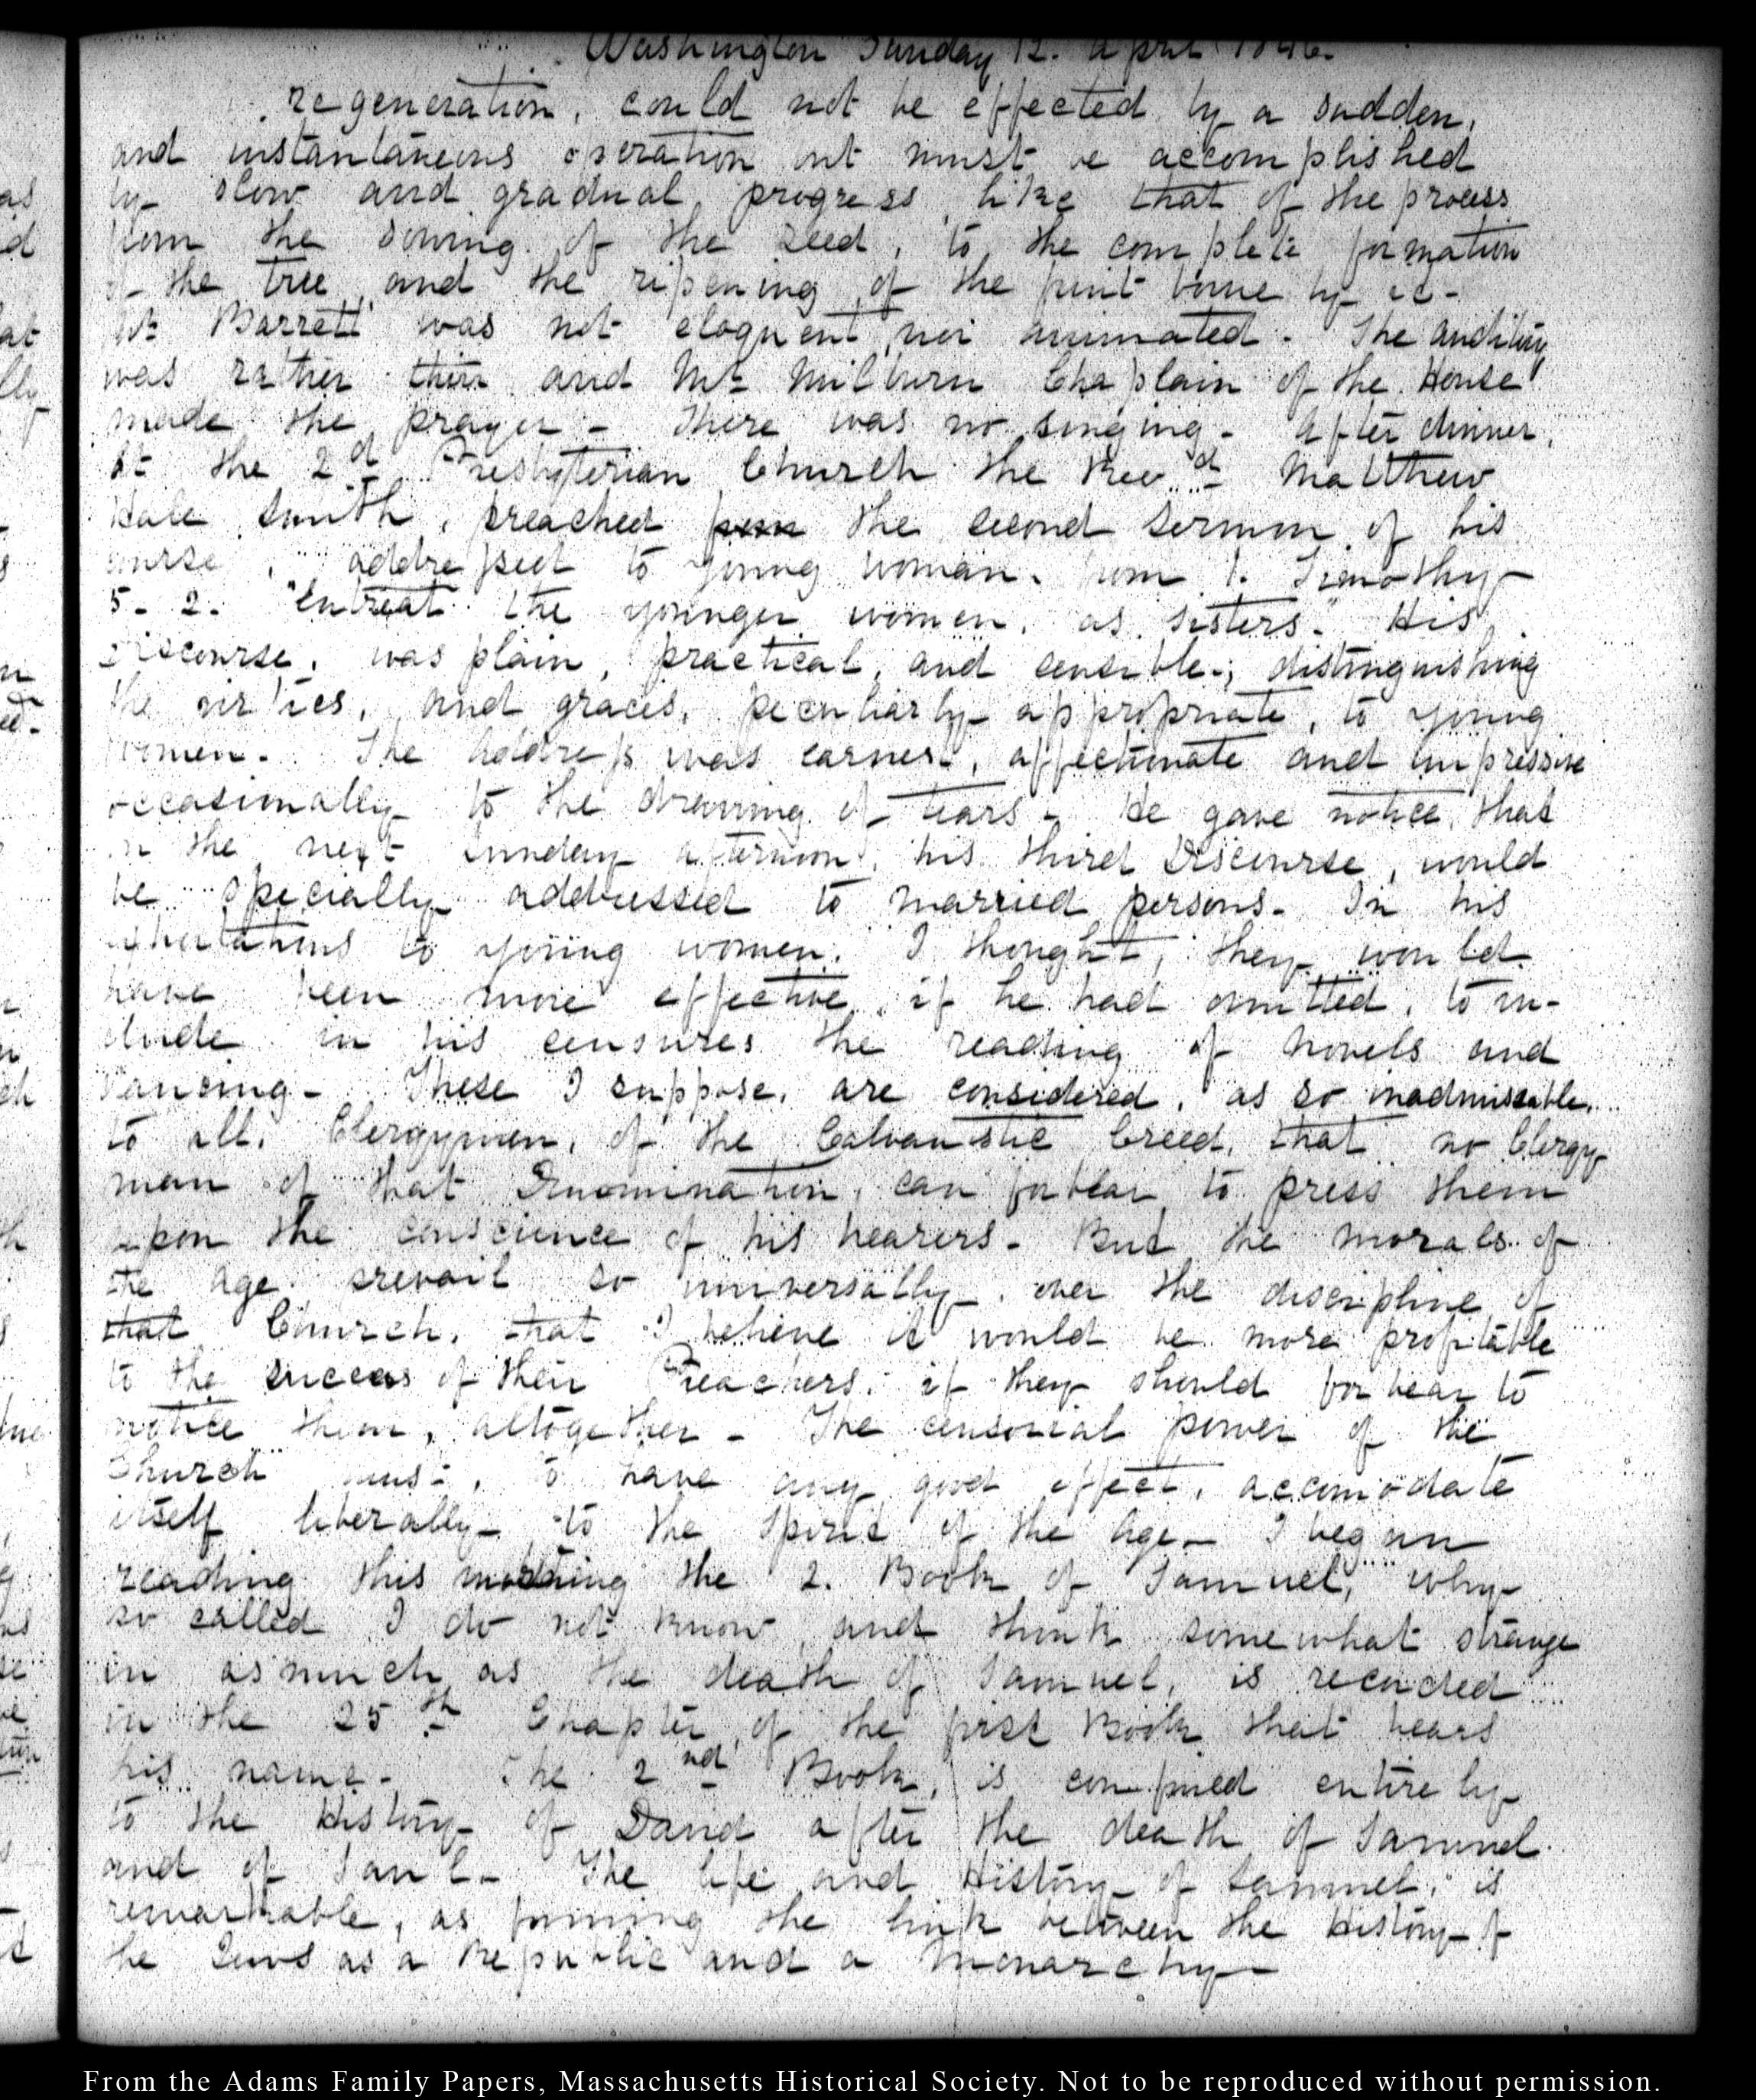 Washington Sunday 12. April 1846.
regeneration, could not be effected by a sudden,
and instantaneous operation but must be accomplished
by slow and gradual, progress, like that of the process
from the sowing of the seed, to the complete formation
of the tree and the ripening of the fruit borne by it-
Mr Barrett was not eloquent, nor animated. The auditory
was rather thin and Mr Milburn Chaplain of the House
made the prayer- There was no singing- After dinner,
At the 2d Presbyterian Church the Revd Matthew
Hale Smith, preached from the second Sermon of his
course, addressed to young woman. from 1. Timothy-
5- 2. "Entreat the younger women, as sisters." His
Discourse, was plain, practical, and sensible-; distinguishing
the virtues, and graces, peculiarly appropriate, to young
women- The Address was earnest, affectionate and impressive
occasionally to the drawing of tears- He gave notice, that
on the next Sunday afternoon, his third Discourse, would
be specially addressed to married persons- In his
exhortations to young women. I thought, they would
have been more effective, if he had omitted, to in-
clude in his censures the reading of Novels and
Dancing- These I suppose, are considered, as so inadmissable,
to all, Clergymen, of the Calvanistic Creed, that no Clergy
man of that Denomination, can forbear to press them
upon the conscience of his hearers- But the morals of
the age prevail so universally, over the discipline of
that Church, that I believe it would be more profitable
to the success of their Preachers. if they should forbear to
notice them, altogether- The censorial power of the
Church must, to have any good effect, accomodate
itself liberally to the Spirit of the Age- I began
reading this morning the 2. Book of Samuel, why-
so called I do not know, and think somewhat strange
in asmuch as the death of Samuel, is recorded
in the 25th Chapter, of the first Book that bears
his name- The 2nd Book, is confined entirely
to the History of David after the death of Samuel
and of Saul- The life and History of Samuel, is
remarkable, as forming the link between the History of
the Jews as a Republic and a Monarchy-
From the Adams Family Papers, Massachusetts Historical Society. Not to be reproduced without permission.